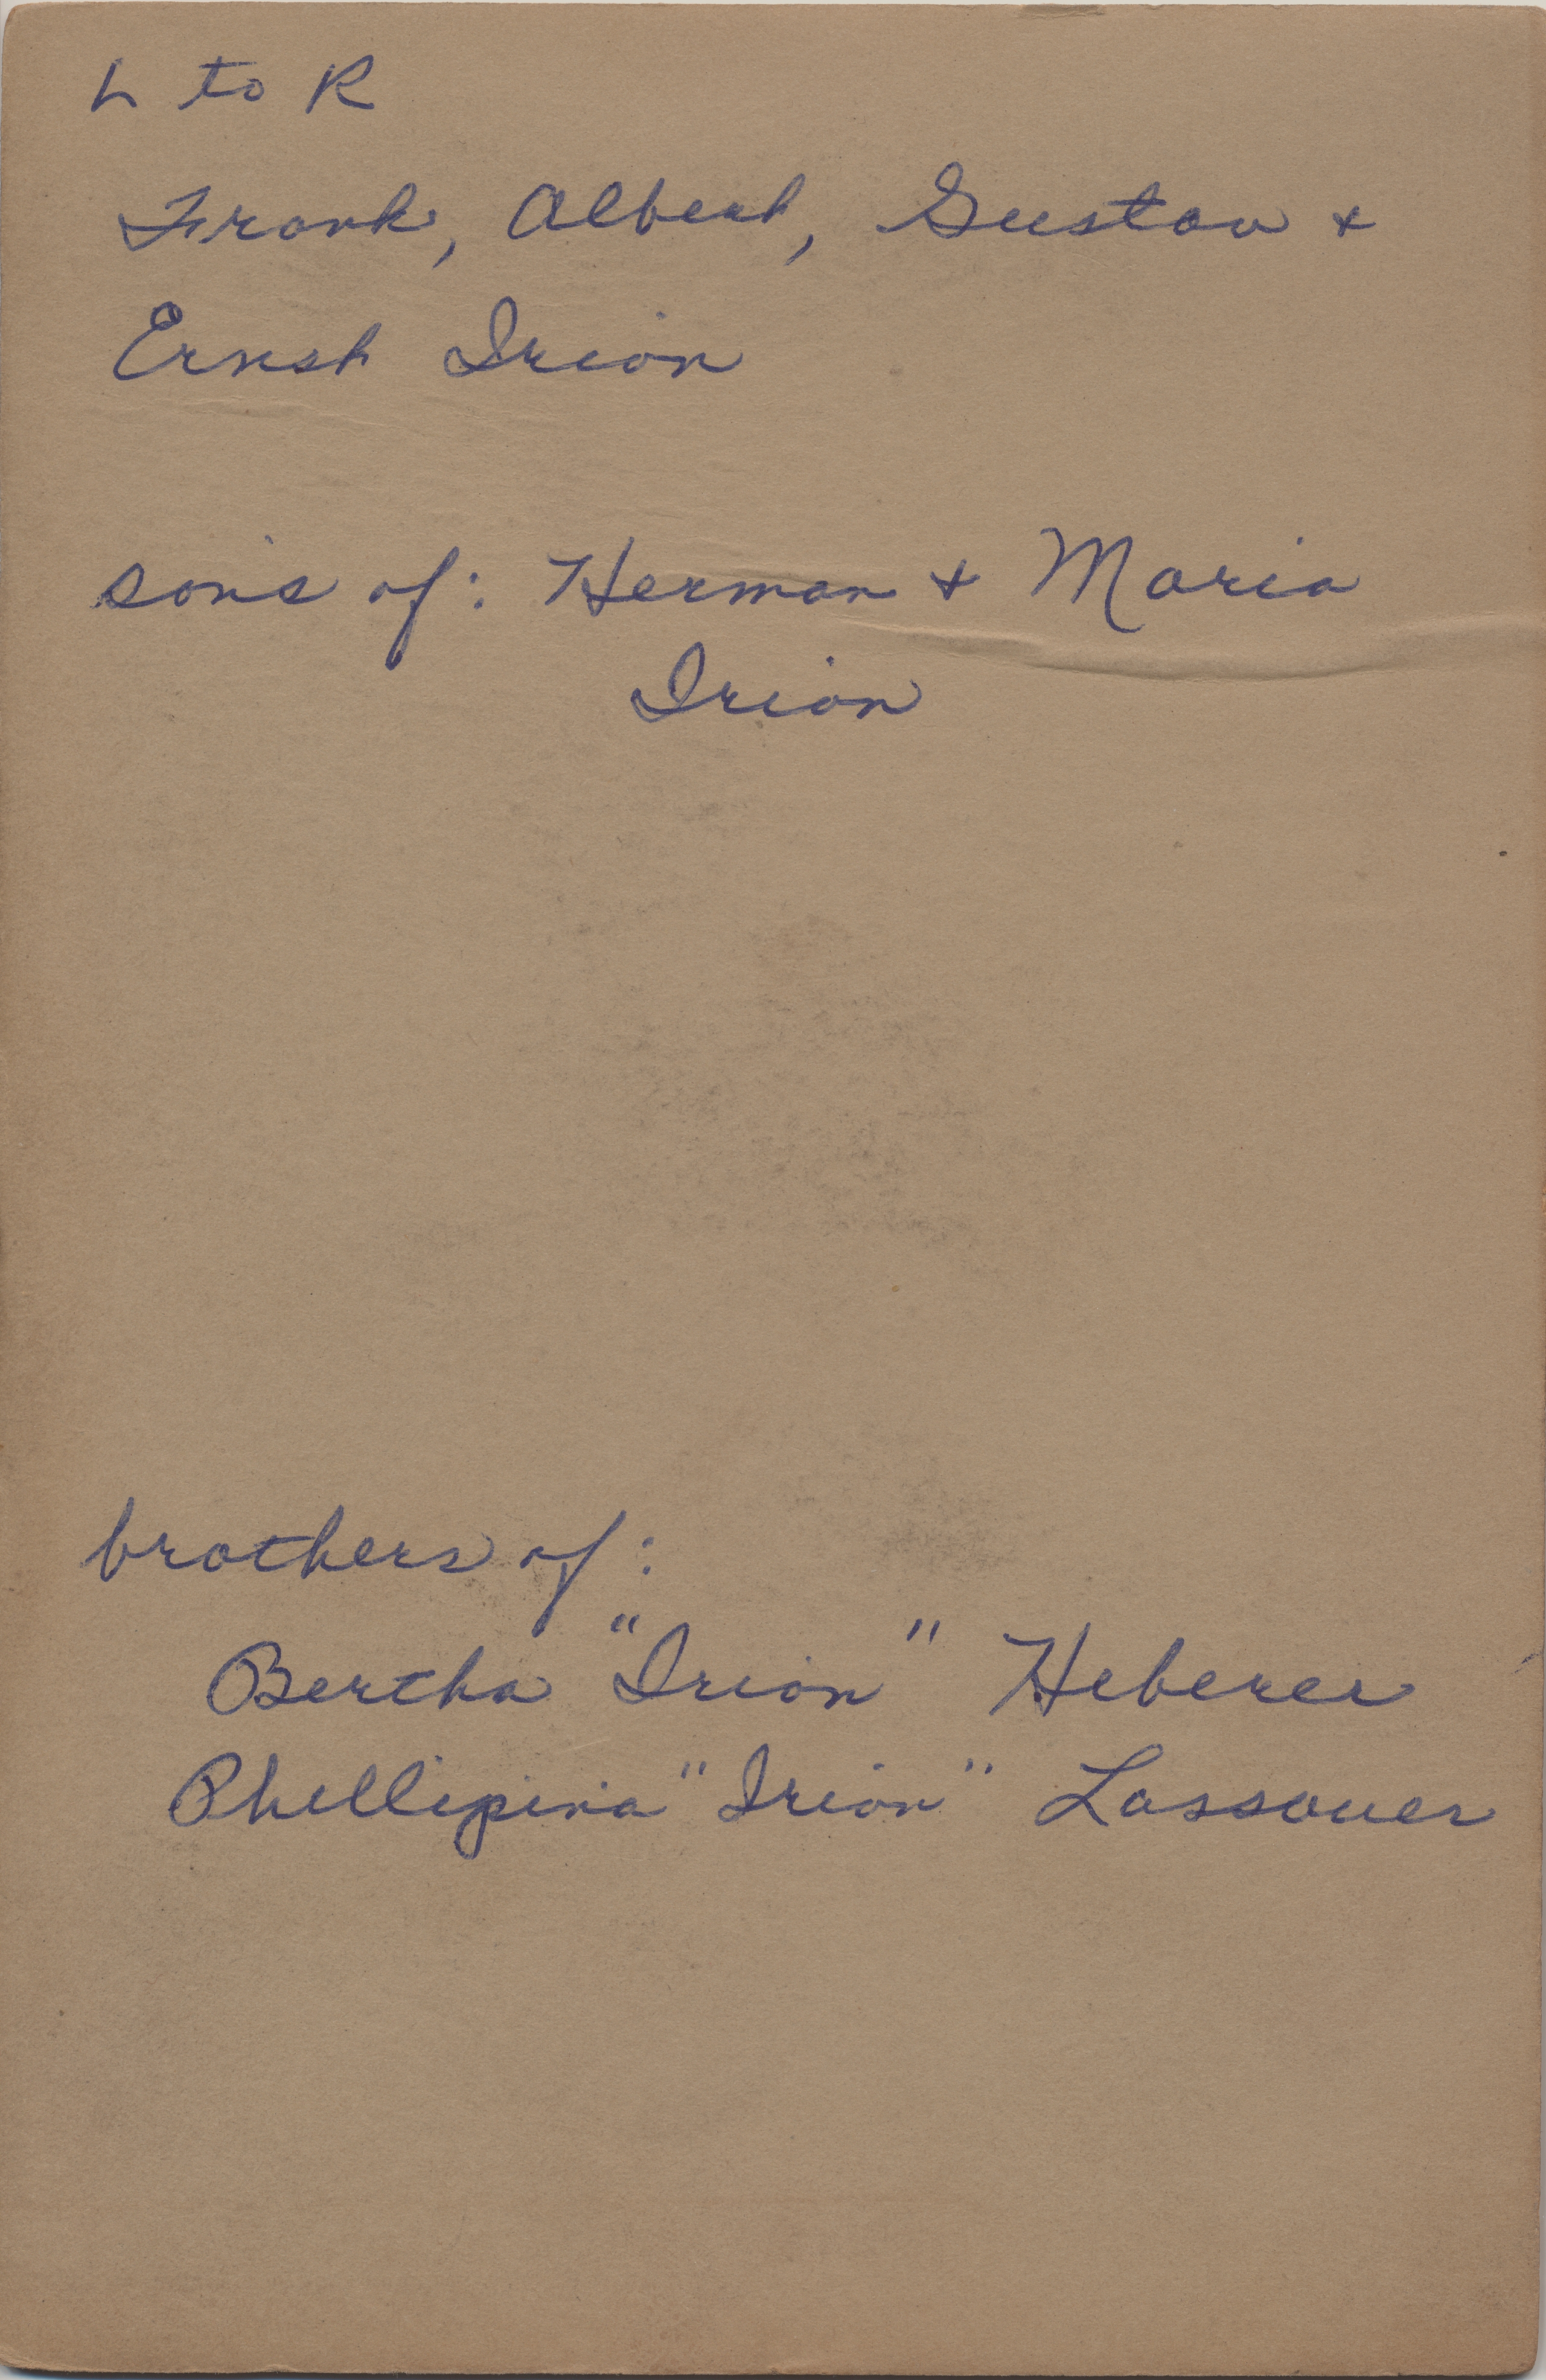 L to R
Frank, Albert, Gustav +
Ernst Irion
son's of: Herman + Maria
Irion
brothers of:
Bertha "Irion" Heberer
Phillipina "Irion" Lassauer